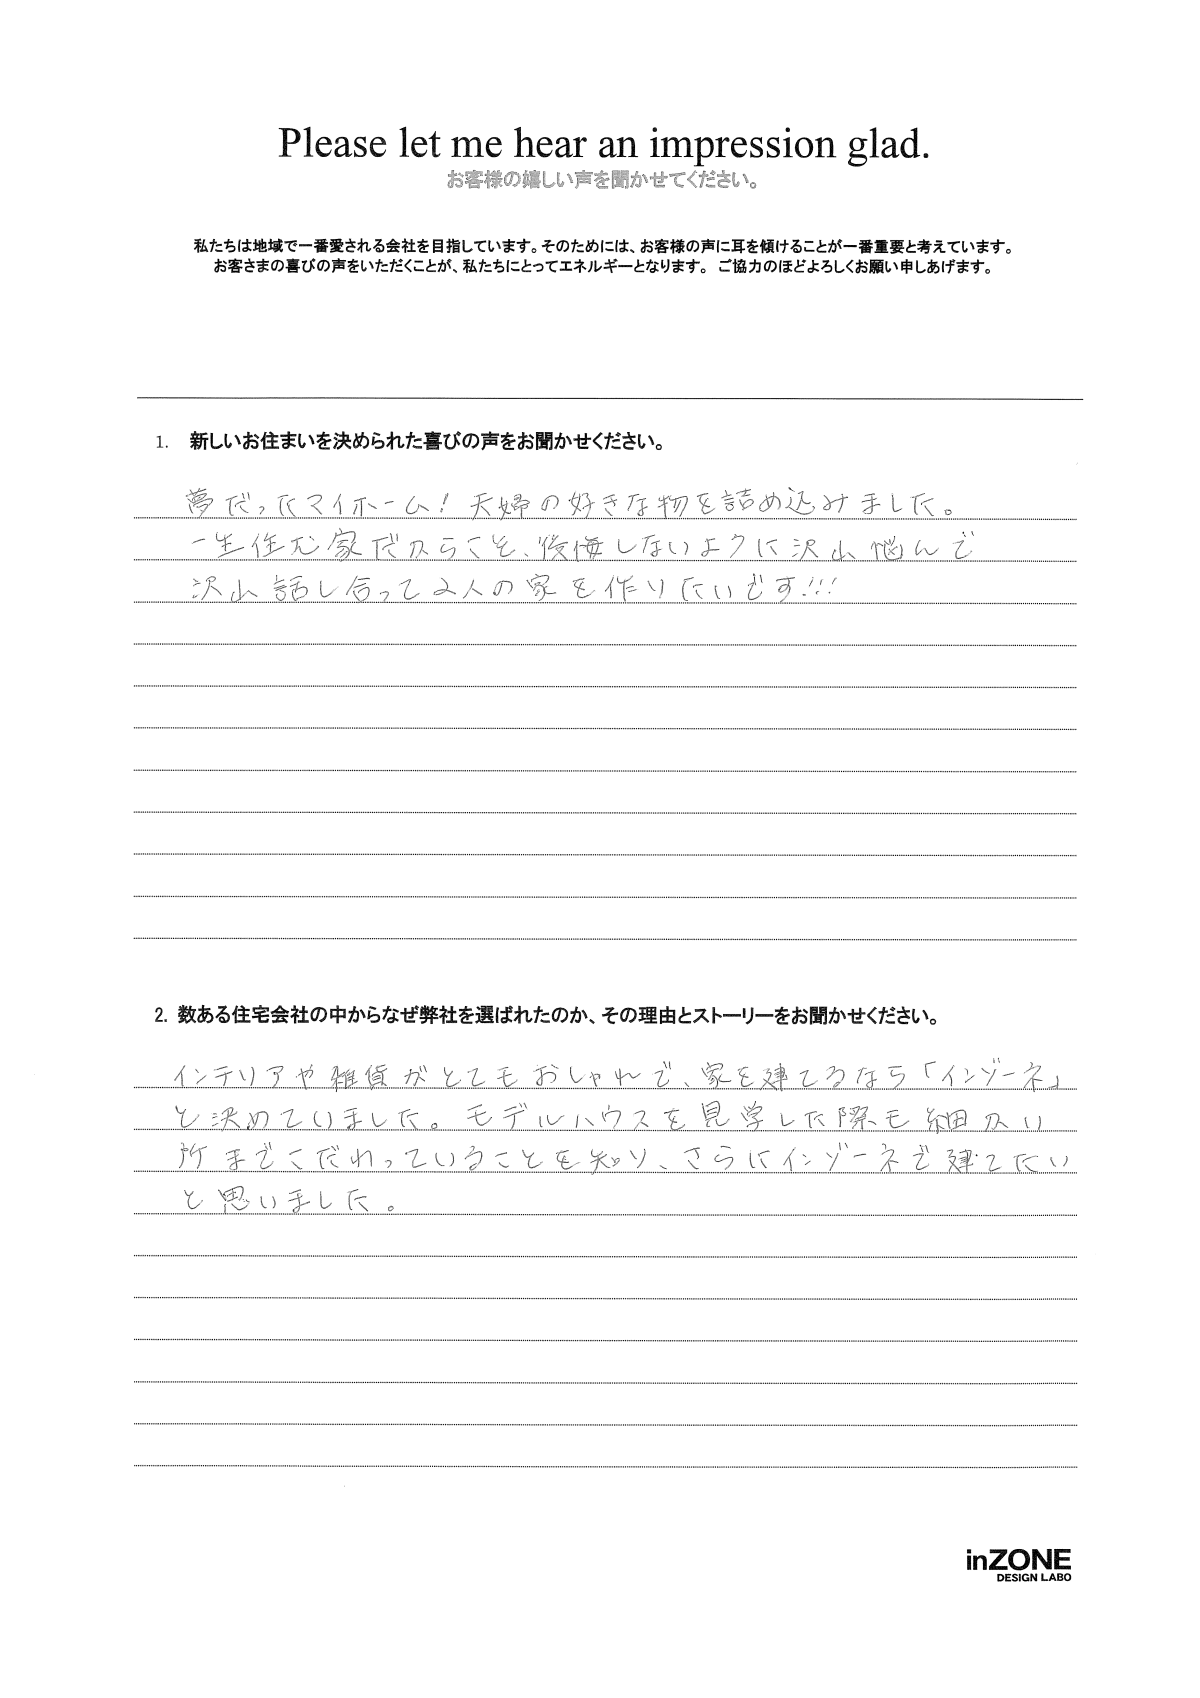 Please let me hear an impression glad.
お客様の嬉しい声を聞かせてください。
私たちは地域で一番愛される会社を目指しています。そのためには、お客様の声に耳を傾けることが一番重要と考えています。
お客さまの喜びの声をいただくことが、私たちにとってエネルギーとなります。 ご協力のほどよろしくお願い申しあげます。
1. 新しいお住まいを決められた喜びの声をお聞かせください。
夢だったマイホーム!夫婦の好きな物を詰め込みました。
一生住む家だからこそ、後悔しないように沢山悩んで
沢山話し合って2人の家を作りたいです!!!
2. 数ある住宅会社の中からなぜ弊社を選ばれたのか、その理由とストーリーをお聞かせください。
インテリアや雑貨がとてもおしゃれで、家を建てるなら「インゾーネ」
と決めていました。モデルハウスを見学した際も細かい
所までこだわっていることを知り、さらにインゾーネで建てたい
と思いました。
inZONE
DESIGN LABO